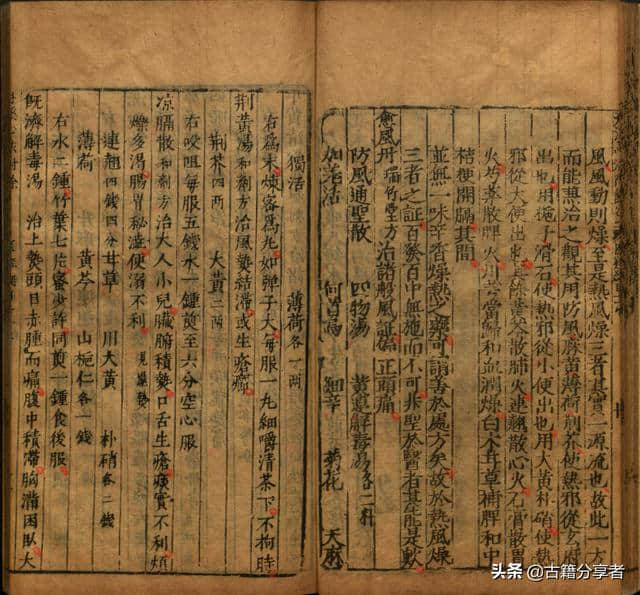 風風動則燥至是熱風燥三者其實一源流也故此一方
而能慧治之觀其用防風麻黃薄荷荊芥使熱邪從玄府
出也用梔子滑石使熱邪從小便出也用大黃朴硝使熱
邪從大便出也黃芩散肺火連翹散心火石膏散胃
火芍藥散脾火川芎當歸和血潤燥白术甘草補脾和中
桔梗開膈其間
並無一味辛香燥熱之藥可謂善於處方矣故於熱風燥
三者之証百發百中無施而不可非聖於醫者其能是歟
愈風丹 瑞竹堂方治諸般風証偏正頭痛
防風通聖散 四物湯 黃連解毒湯各二斤
加羌活 何首烏 細辛 菊花 天麻
獨活 薄荷各一兩
右為末煉密為丸如彈子大每服一丸細嚼清茶下不拘時
荊黃湯和劑方治風熱結滯或生瘡癤
荊芥四兩 大黃二兩
右㕮咀每服五錢水一鍾煎至六分空心服
凉膈散和劑方治大人小兒臟腑積熱口舌生瘡痰實不利煩
爍多渴腸胃秘澁便溺不利 見諸熱
連翹四錢四分甘草 川大黃 朴硝各二錢
薄荷 黃芩 山梔仁各一錢
右水二鍾竹葉七片蜜少許同煎一鍾食後服
既濟解毒湯 治上熱頭目赤腫而痛腹中積滯胸滿困臥大
头条 @古籍分享者